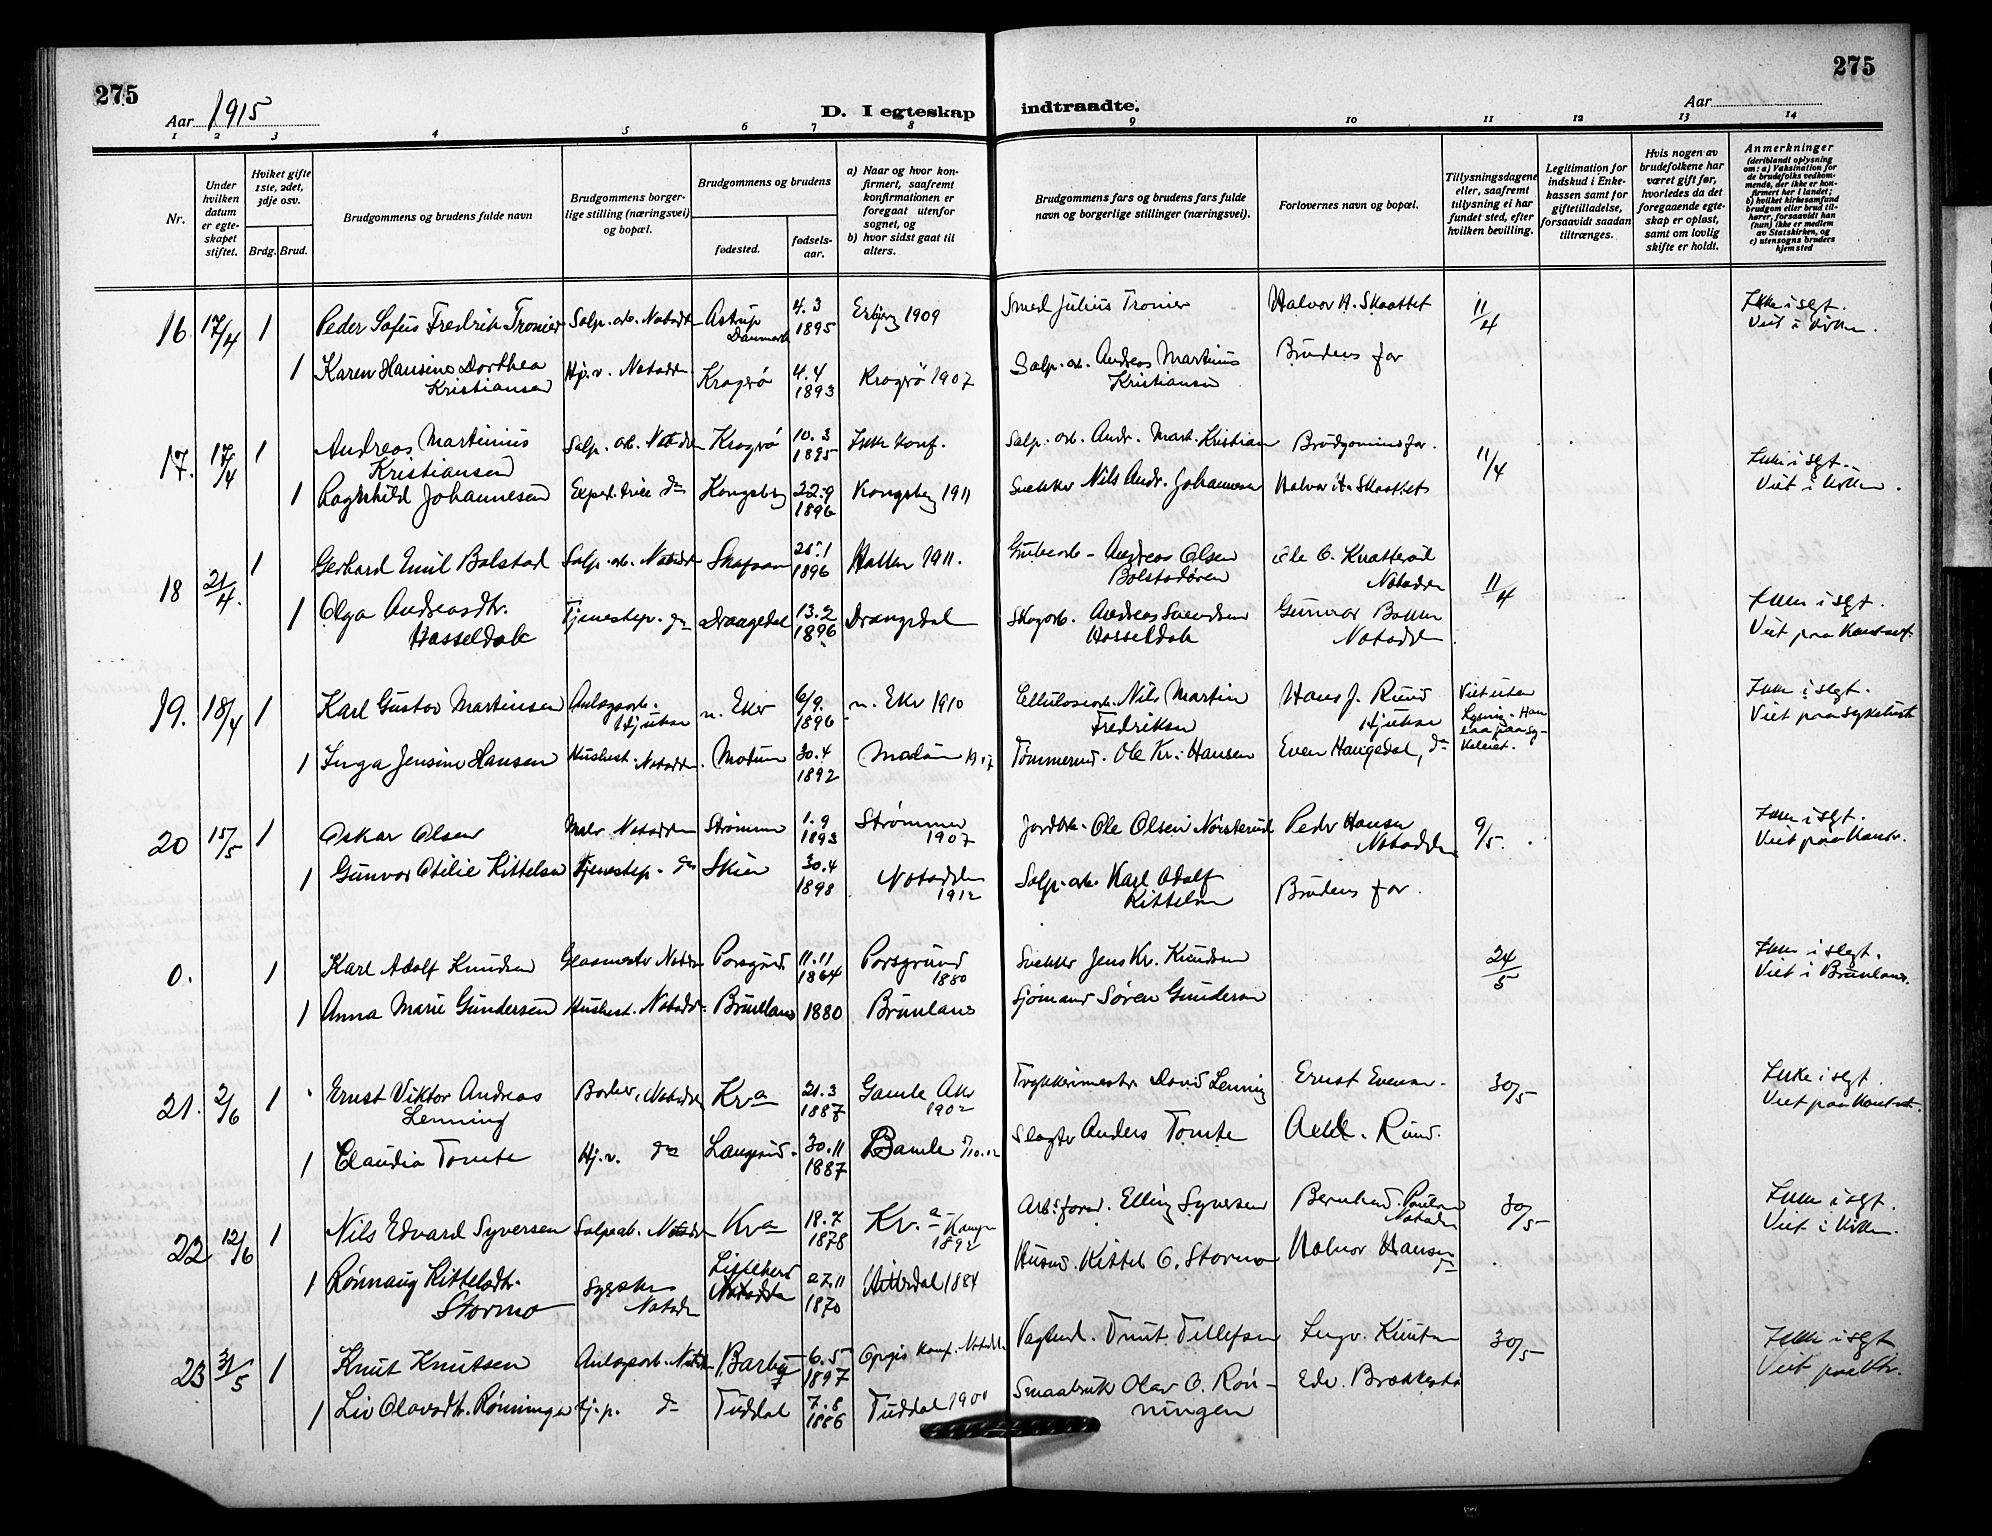 275
275
Aar 1915
D. I egteskap
indtraadte.
Aar
1 2 3 4 5 6 7 8 9 10 11 12 13 14
Nr.
Under hvilken datum er egteskapet stiftet.
Hviket gifte 1ste, 2det, 3dje osv.
Brdg. Brud.
Brudgommens og brudens fulde navn
Brudgommens borgerlige stilling (næringsvei) og bopæl.
Brudgommens og brudens
fødested.
fødselsaar.
a) Naar og hvor konfirmert, saafremt konfirmationen er foregaat utenfor sognet, og
b) hvor sidst gaat til alters.
Brudgommens fars og brudens fars fulde navn og borgerlige stillinger (næringsvei).
Forlovernes navn og bopæl.
Tillysningsdagene eller, saafremt tilysning ei har fundet sted, efter hvilken bevilling.
Legitimation for indskud i Enkekassen samt for giftetilladelse, forsaavidt saadan tiltrænges.
Hvis nogen av brudefolkene har været gift før, hvorledes da det foregaaende egteskap er opløst, samt om lovlig skifte er holdt.
Anmerkninger
(deriblandt oplysning om: a) Vaksination for de brudefolks vedkommende, der ikke er konfirmert her i landet; b) hvilket kirkesamfund brudgom eller brud tilhører, forsaavidt han (hun) ikke er medlem av Statskirken, og c) utensogns bruders hjemsted
16 17/4 1 Peder Sofus Fredrik Tronier Salp. arb. Notodden Astrup Danmark 4.3 1895 Esbjerg 1909 Smed Julius Tronier Halvor H. Skaattet 11/4 Ikke i slgt. Viet i kirken.
1 Karen Hansine Dorthea Kristiansen Hj. v. Notodden Kragerø 4.4 1893 Kragerø 1907 Salp. arb. Andreas Martinius Kristiansen Brudens far
17. 17/4 1 Andreas Martinius Kristiansen Salp. arb. Notodden Kragerø 10.3 1895 Ikke konf. Salp. arb. Andr. Mart. Kristian Brudgommens far. 11/4 Ikke i slgt. Viet i kirken.
1 Ragnhild Johannesen Exped.trice do Kongsberg 22.9 1896 Kongsberg 1911 Snekker Nils Andr. Johannesen Halvor H. Skaattet
18 21/4. 1 Gerhard Emil Bolstad Salp. arb. Notodden 25.1 1896 1911. Grubearb. Andreas Olsen Bolstadøren Ole O. Notodden 11/4 Ikke i slgt. Viet paa kontoret
1 Olga Andreasdtr. Hasseldal Tjenestep. do Drangedal 13.2 1896 Drangedal Skogarb. Andreas Svendsen Hasseldal Gunnar Bakken Notodden
19. 18/4 1 Karl Gustav Martinsen Anlægsarb. Hjuksa n. Eker 6/9. 1896 n. Eker 1910 Cellulosearb. Nils Martin Fredriksen Hans J. Ruud Hjuksa Viet uten lysning. Han laa paa sykeleiet. Ikke i slgt. Viet paa sykehuset
1 Inga Jensine Hansen Hushest. Notodden. Modum 30.4 1892 Modum Tømmermd. Ole Kr. Hansen Even Haugedal, do
20 15/5 1 Oskar Olsen Maler Notodden Strømmen 1.9 1893 Strømmen 1907 Jordbr. Ole Olsen Norsterud Peder Hansen Notodden 9/5. Ikke i slgt. Viet paa kontor.
1 Gunvor Otilie Kittelsen Tjenestep. do Skien 30.4 1898 Notodden 1912 Salp. arb. Karl Adolf Kittelsen Brudens far.
0. 1 Karl Adolf Knudsen Glasmester Notodden Porsgrund 11.11 1864 Porsgrund 1880 Snekker Jens Kr. Knudsen 24/5 Ikke i slegt. Viet i Brunlanes.
1 Anna Marie Gundersen Hushest. Notodden Brunlanes 1880 Brunlanes Sjømand Søren Gundersen
21. 2/6 1 Ernst Viktor Andreas Lenning Barber, Notodden Kra 21.3 1887 Gamle Aker 1902 Trykkerimester David Lenning Ernst Evensen 30/5 Ikke i slgt. Viet paa kontoret.
1 Claudia Tomte Hj. v. do Langesund 30.11 1887 Bamle Slagter Anders Tomte Ruud.
22 12/6 1 Nils Edvard Syversen Salpearb. Notodden Kra 18.7 1878 Kr.a Kampen 1892 Arb.formd. Elling Syversen Bernhard Paulsen Notodden 30/5 Ikke i slgt. Viet i kirken.
1 Rønnaug Kittelsdtr. Stormo Syerske Notodden Notodden 27.11 1870 Hitterdal 1884 Husmd. Kittel O. Stormo Halvor Hansen do
23 31/5 1 Knut Knutsen Anlægsarb. Notodden Barby 6.5 1897 Opgis konf. Notodden Vagtmd. Knut Tellefsen Ingv. Knutsen 30/5 Ikke i slgt Viet paa ktr.
1 Liv Olavsdtr. Rønningen Tj.p. do Tuddal 7.8 1886 Tuddal 1901 Smaabruker Olav O. Rønningen Edv. Brekke